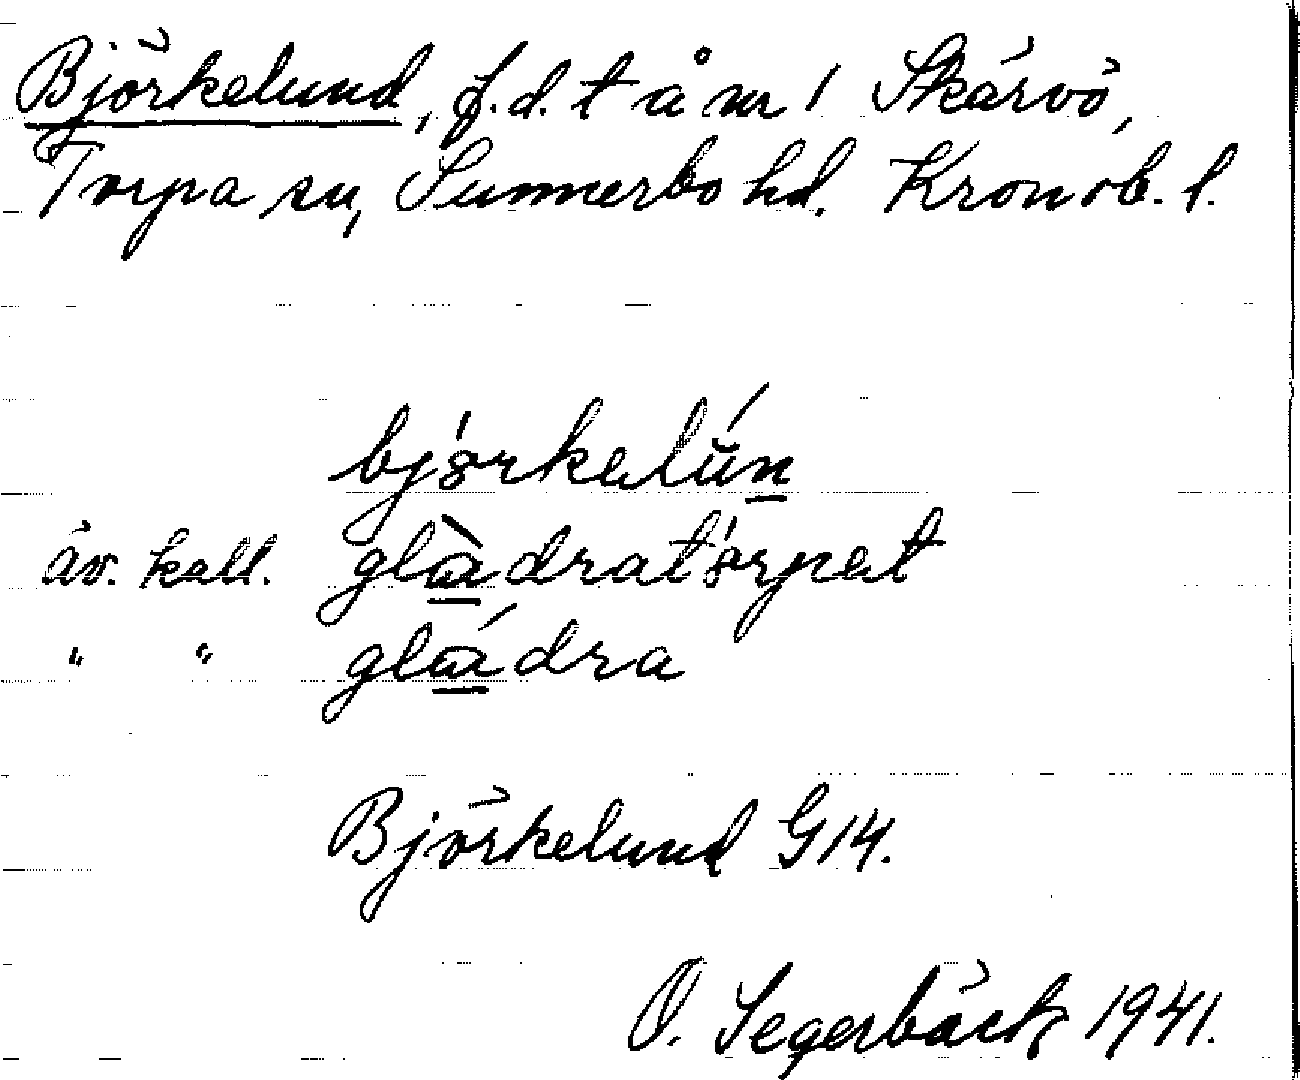 Björkelund, f.d. t å nr 1 Skärvö,
Torpa sn, Sunnerbo hd. Kronob. l.
björkelún
äv. kall. glàdratörpet
" " gládra
Björkelund G14.
O. Segerbäck 1941.